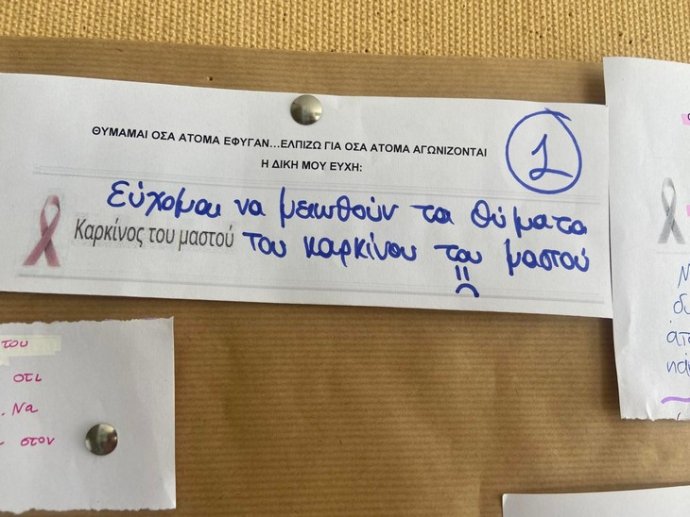 ΘΥΜΑΜΑΙ ΟΣΑ ΑΤΟΜΑ ΕΦΥΓΑΝ...ΕΛΠΙΖΩ ΓΙΑ ΟΣΑ ΑΤΟΜΑ ΑΓΩΝΙΖΟΝΤΑΙ
Η ΔΙΚΗ ΜΟΥ ΕΥΧΗ:
1
Εύχομαι να μειωθούν τα θύματα
Καρκίνος του μαστού
του καρκίνου του μαστού
του
οτι
. Να
στον